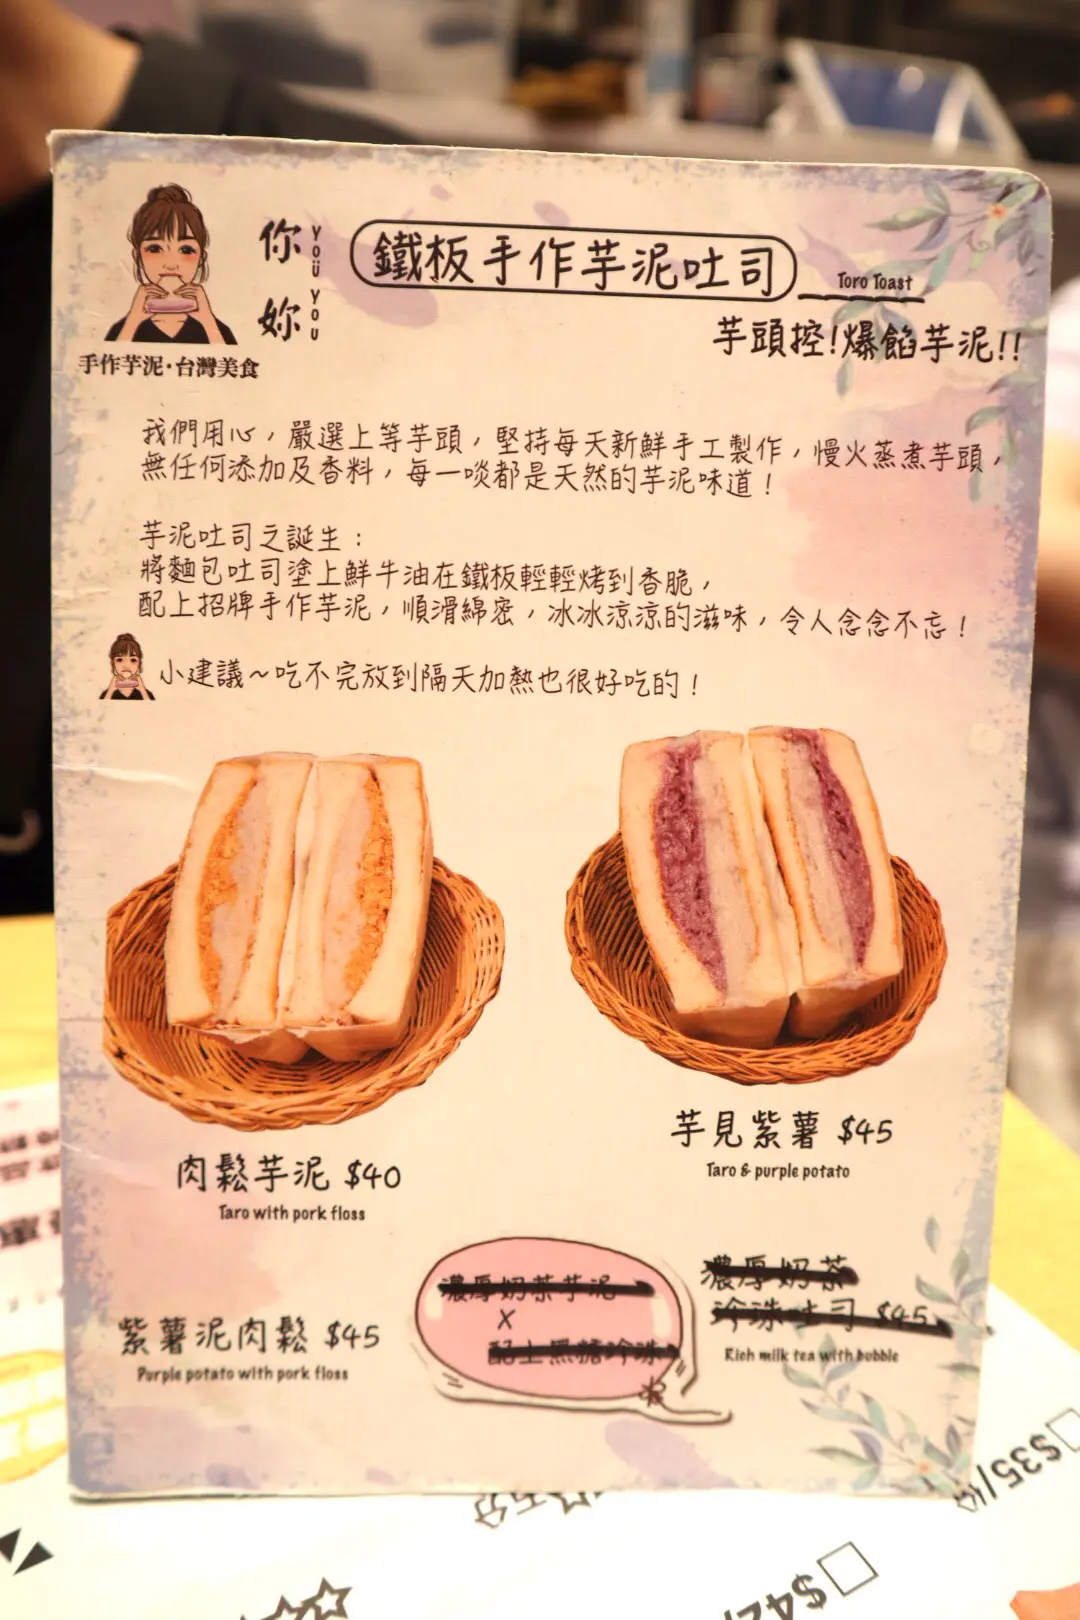 你妳
YOU YOU
鐵板手作芋泥吐司
Toro Toast
手作芋泥·台灣美食
芋頭控!爆餡芋泥!!
我們用心，嚴選上等芋頭，堅持每天新鮮手工製作，慢火蒸煮芋頭，
無任何添加及香料，每一啖都是天然的芋泥味道！
芋泥吐司之誕生：
將麵包吐司塗上鮮牛油在鐵板輕輕烤到香脆，
配上招牌手作芋泥，順滑綿密，冰冰涼涼的滋味，令人念念不忘！
小建議～吃不完放到隔天加熱也很好吃的！
肉鬆芋泥 $40
Taro with pork floss
芋見紫薯 $45
Taro & purple potato
紫薯泥肉鬆 $45
Purple potato with pork floss
濃厚奶茶芋泥
X
配上黑糖珍珠
濃厚奶茶
珍珠吐司 $45
Rich milk tea with bubble
$35/份
$42/